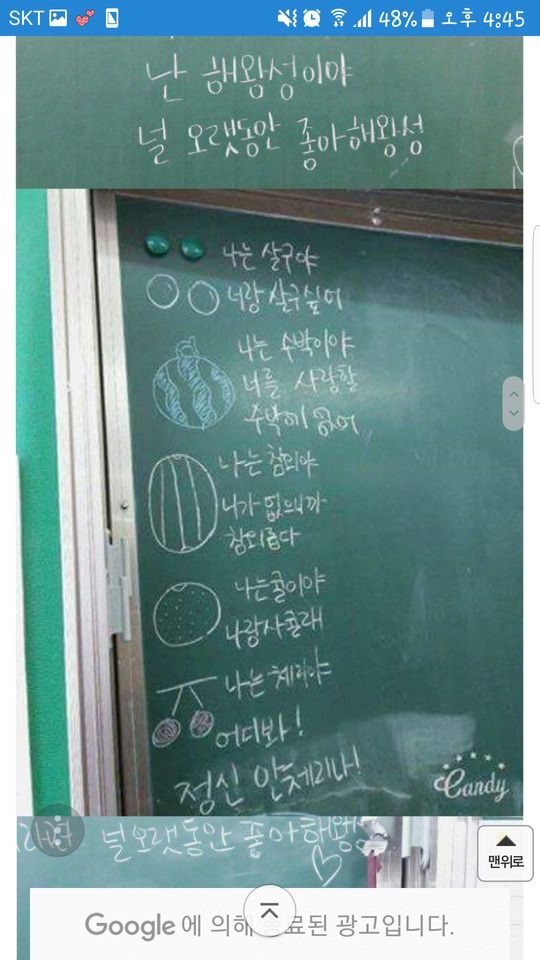 SKT 48% 오후 4:45
난 해왕성이야
널 오랫동안 좋아해왕성
나는 살구야
너랑 살구싶어
나는 수박이야
너를 사랑할
수박에 없어
나는 참외야
니가 없으니까
참외롭다
나는귤이야
나랑사귤래
나는 체리야
어디봐!
정신 안체리나!
Candy
널오랫동안 좋아해왕성
맨위로
Google에 의해 종료된 광고입니다.